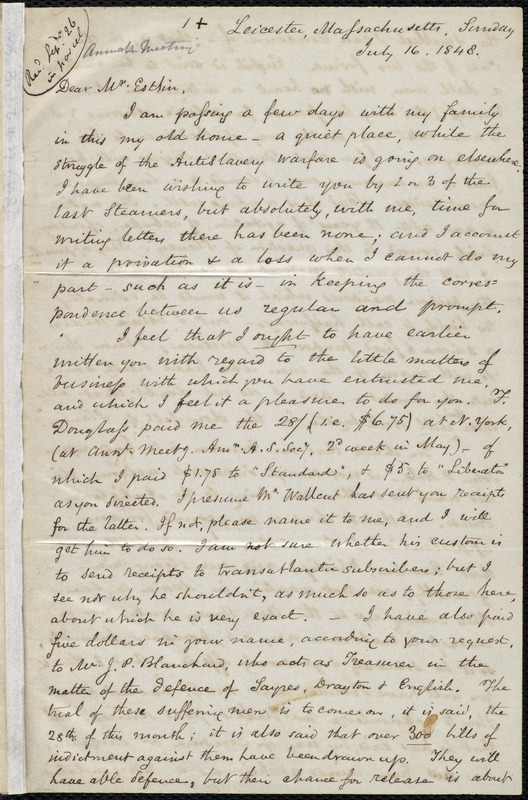 1 +
Leicester, Massachusetts, Sunday
July 16. 1848.
Rec.d Sep. 26
in parcel
Annual Meeting
Dear Mr. Estlin,
I am passing a few days with my family
in this my old home – a quiet place, while the
struggle of the Antislavery warfare is going on elsewhere.
I have been wishing to write you by 2 or 3 of the
last Steamers, but absolutely, with me, time for
writing letters there has been none; and I account
it a privation & a loss when I cannot do my
part – such as it is – in keeping the corres=
pondence between us regular and prompt.
I feel that I ought to have earlier
written you with regard to the little matters of
business with which you have entrusted me,
and which I feel it a pleasure to do for you. F.
Douglass paid me the 28/ (i.e. $6.75) at N. York,
(at Ann.l Meetg. Amn. A. S. Socy, 2d week in May) – of
which I paid $1.75 to "Standard", & $5. to "Liberator"
as you directed. I presume Mr. Wallcut has sent you receipts
for the latter. If not, please name it to me, and I will
get him to do so. I am not sure whether his custom is
to send receipts to transatlantic subscribers; but I
see not why he shouldn't, as much so as to those here,
about which he is very exact. – I have also paid
five dollars in your name, according to your request,
to Mr. J. P. Blanchard, who acts as Treasurer in the
matter of the defence of Sayres, Drayton & English. The
trial of these suffering men is to come on, it is said, the
28th. of this month; it is also said that over 300 bills of
indictment against them have been drawn up. They will
have able defence, but their chance for release is about